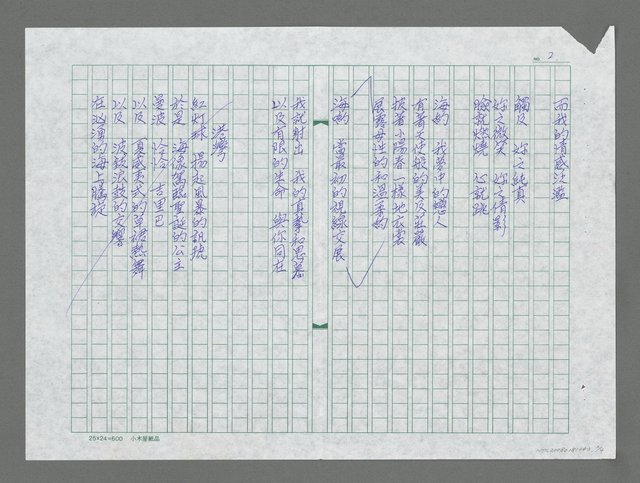 NO. 2
而我的情感泛濫
觸及 妳之純真
妳之微笑 妳之倩影
臉就燃燒 心就跳
海的 我夢中的戀人
有著天使般的美及莊嚴
披著小陽春一樣地衣裳
展露母性的和溫柔的
海的 當最初的視線交展
我就射出 我的真摯和思慕
以及有限的生命 與你同在
港灣
紅灯球 揚起風暴的訊號
於是 海像駕臨聖誕的公主
曼波 恰恰 吉里巴
以及 夏威夷式的草裙熱舞
以及 波鼓浪鼓的交響
在汹湧的海上騰旋
25×24=600 小木屋紙品